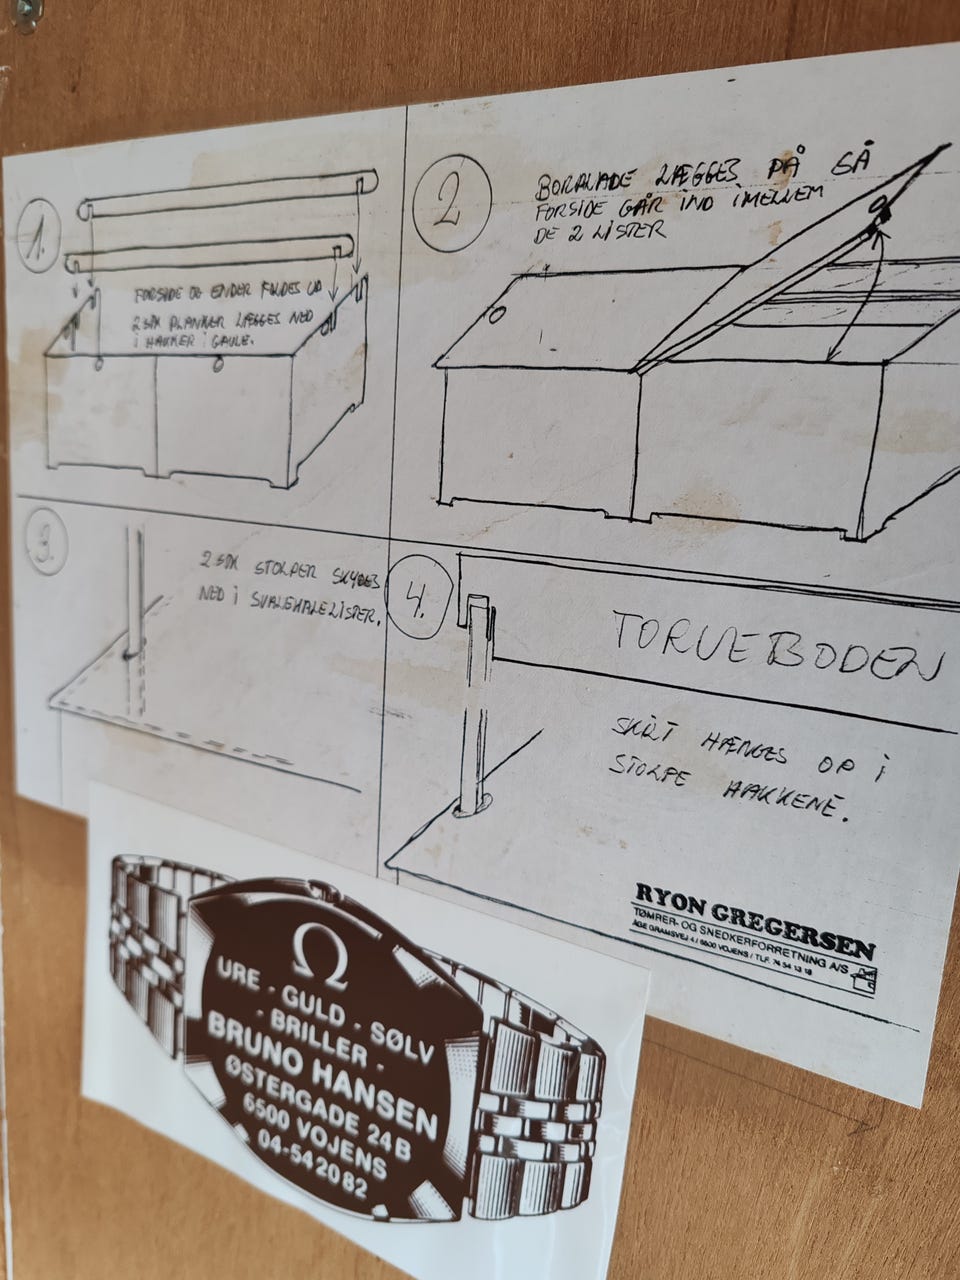 1.
FORSIDE OG ENDER FOLDES UD
2 STK PLANKER LÆGGES NED
I HAKKER I GAVLE.
2
BORDPLADE LÆGGES PÅ SÅ
FORSIDE GÅR IND IMELLEM
DE 2 LISTER
3.
2 STK STOLPER SKYDES
NED I SVALEHALELISTER.
4.
TORVEBODEN
SKILT HÆNGES OP I
STOLPE HAKKENE.
RYON GREGERSEN
TØMRER- OG SNEDKERFORRETNING A/S
AGE GRAMSVEJ 4 / 6500 VOJENS / TLF. 74 54 13 18
Ω
URE - GULD - SØLV
- BRILLER -
BRUNO HANSEN
ØSTERGADE 24B
6500 VOJENS
04-54 20 82